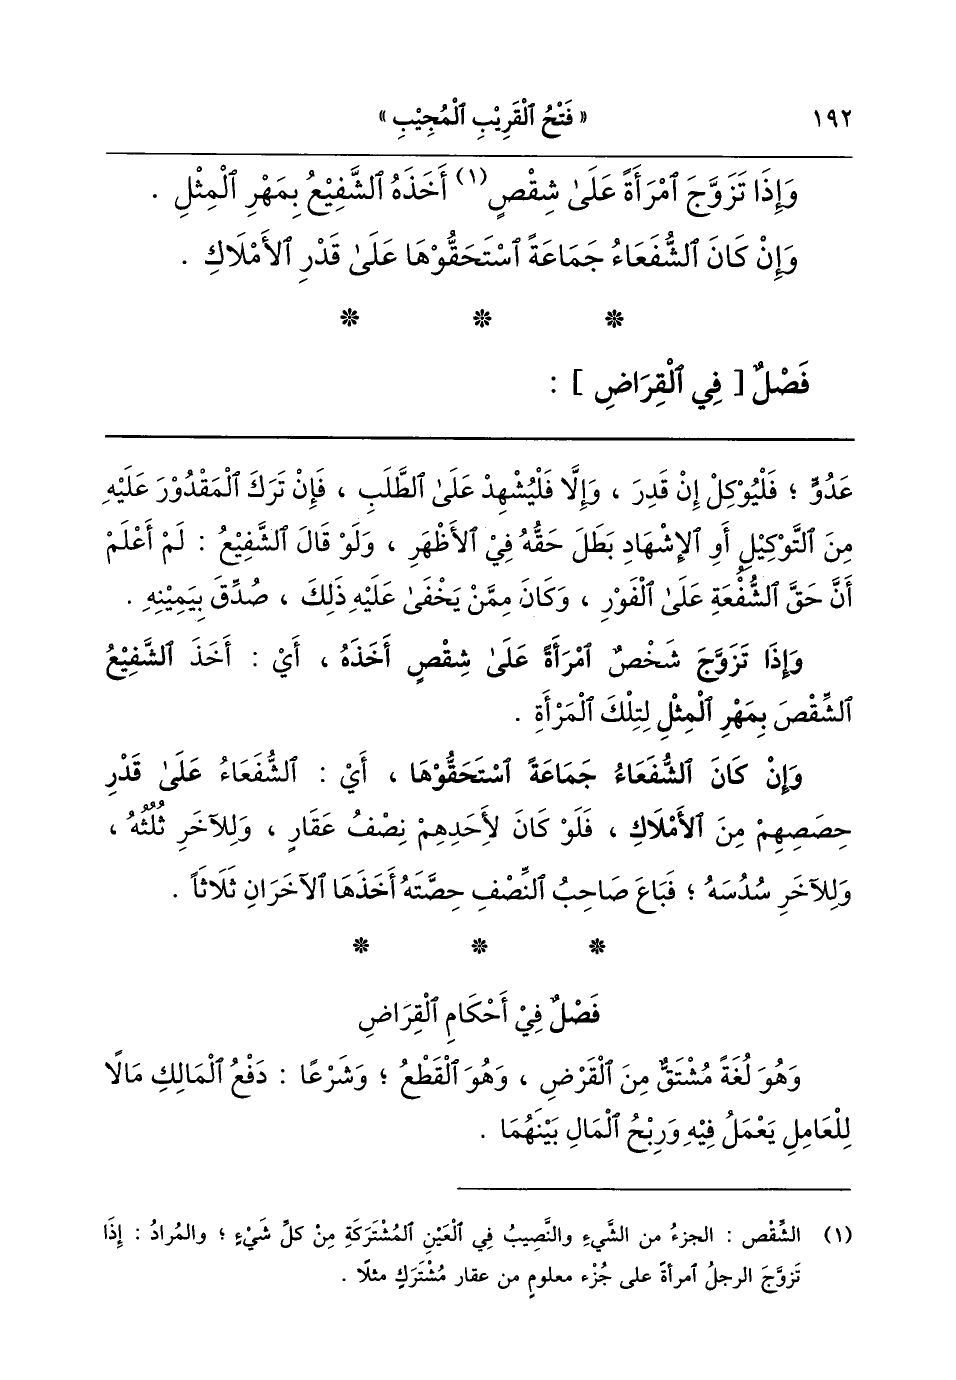 ١٩٢
« فَتْحُ ٱلْقَرِيْبِ ٱلْمُجِيْبِ »
وَإِذَا تَزَوَّجَ ٱمْرَأَةً عَلَىٰ شِقْصٍ(١) أَخَذَهُ ٱلشَّفِيْعُ بِمَهْرِ ٱلْمِثْلِ .
وَإِنْ كَانَ ٱلشُّفَعَاءُ جَمَاعَةً ٱسْتَحَقُّوْهَا عَلَىٰ قَدْرِ ٱلأَمْلَاكِ .
* * *
فَصْلٌ [ فِي ٱلْقِرَاضِ ] :
عَدُوٍّ ؛ فَلْيُوَكِلْ إِنْ قَدِرَ ، وَإِلَّا فَلْيُشْهِدْ عَلَىٰ ٱلطَّلَبِ ، فَإِنْ تَرَكَ ٱلْمَقْدُوْرَ عَلَيْهِ
مِنَ ٱلتَّوْكِيْلِ أَوِ ٱلإِشْهَادِ بَطَلَ حَقُّهُ فِيْ ٱلأَظْهَرِ ، وَلَوْ قَالَ ٱلشَّفِيْعُ : لَمْ أَعْلَمْ
أَنَّ حَقَّ ٱلشُّفْعَةِ عَلَىٰ ٱلْفَوْرِ ، وَكَانَ مِمَّنْ يَخْفَىٰ عَلَيْهِ ذَلِكَ ، صُدِّقَ بِيَمِيْنِهِ .
وَإِذَا تَزَوَّجَ شَخْصٌ ٱمْرَأَةً عَلَىٰ شِقْصٍ أَخَذَهُ ، أَيْ : أَخَذَ ٱلشَّفِيْعُ
ٱلشِّقْصَ بِمَهْرِ ٱلْمِثْلِ لِتِلْكَ ٱلْمَرْأَةِ .
وَإِنْ كَانَ ٱلشُّفَعَاءُ جَمَاعَةً ٱسْتَحَقُّوْهَا ، أَيْ : ٱلشُّفَعَاءُ عَلَىٰ قَدْرِ
حِصَصِهِمْ مِنَ ٱلأَمْلَاكِ ، فَلَوْ كَانَ لأَحَدِهِمْ نِصْفُ عَقَارٍ ، وَلِلآخَرِ ثُلُثُهُ ،
وَلِلآخَرِ سُدُسَهُ ؛ فَبَاعَ صَاحِبُ ٱلنِّصْفِ حِصَّتَهُ أَخَذَهَا ٱلآخَرَانِ ثَلَاثاً .
* * *
فَصْلٌ فِيْ أَحْكَامِ ٱلْقِرَاضِ
وَهُوَ لُغَةً مُشْتَقٌّ مِنَ ٱلْقَرْضِ ، وَهُوَ ٱلْقَطْعُ ؛ وَشَرْعًا : دَفْعُ ٱلْمَالِكِ مَالًا
لِلْعَامِلِ يَعْمَلُ فِيْهِ وَرِبْحُ ٱلْمَالِ بَيْنَهُمَا .
(١) الشِّقْص : الجزءُ من الشَّيءِ والنَّصِيبُ فِي ٱلْعَيْنِ ٱلمُشْتَرَكَةِ مِنْ كلِّ شَيْءٍ ؛ والمُرادُ : إِذَا
تَزوَّجَ الرجلُ ٱمرأةً على جُزْء معلومٍ من عقار مُشْتَرَكٍ مثلًا .